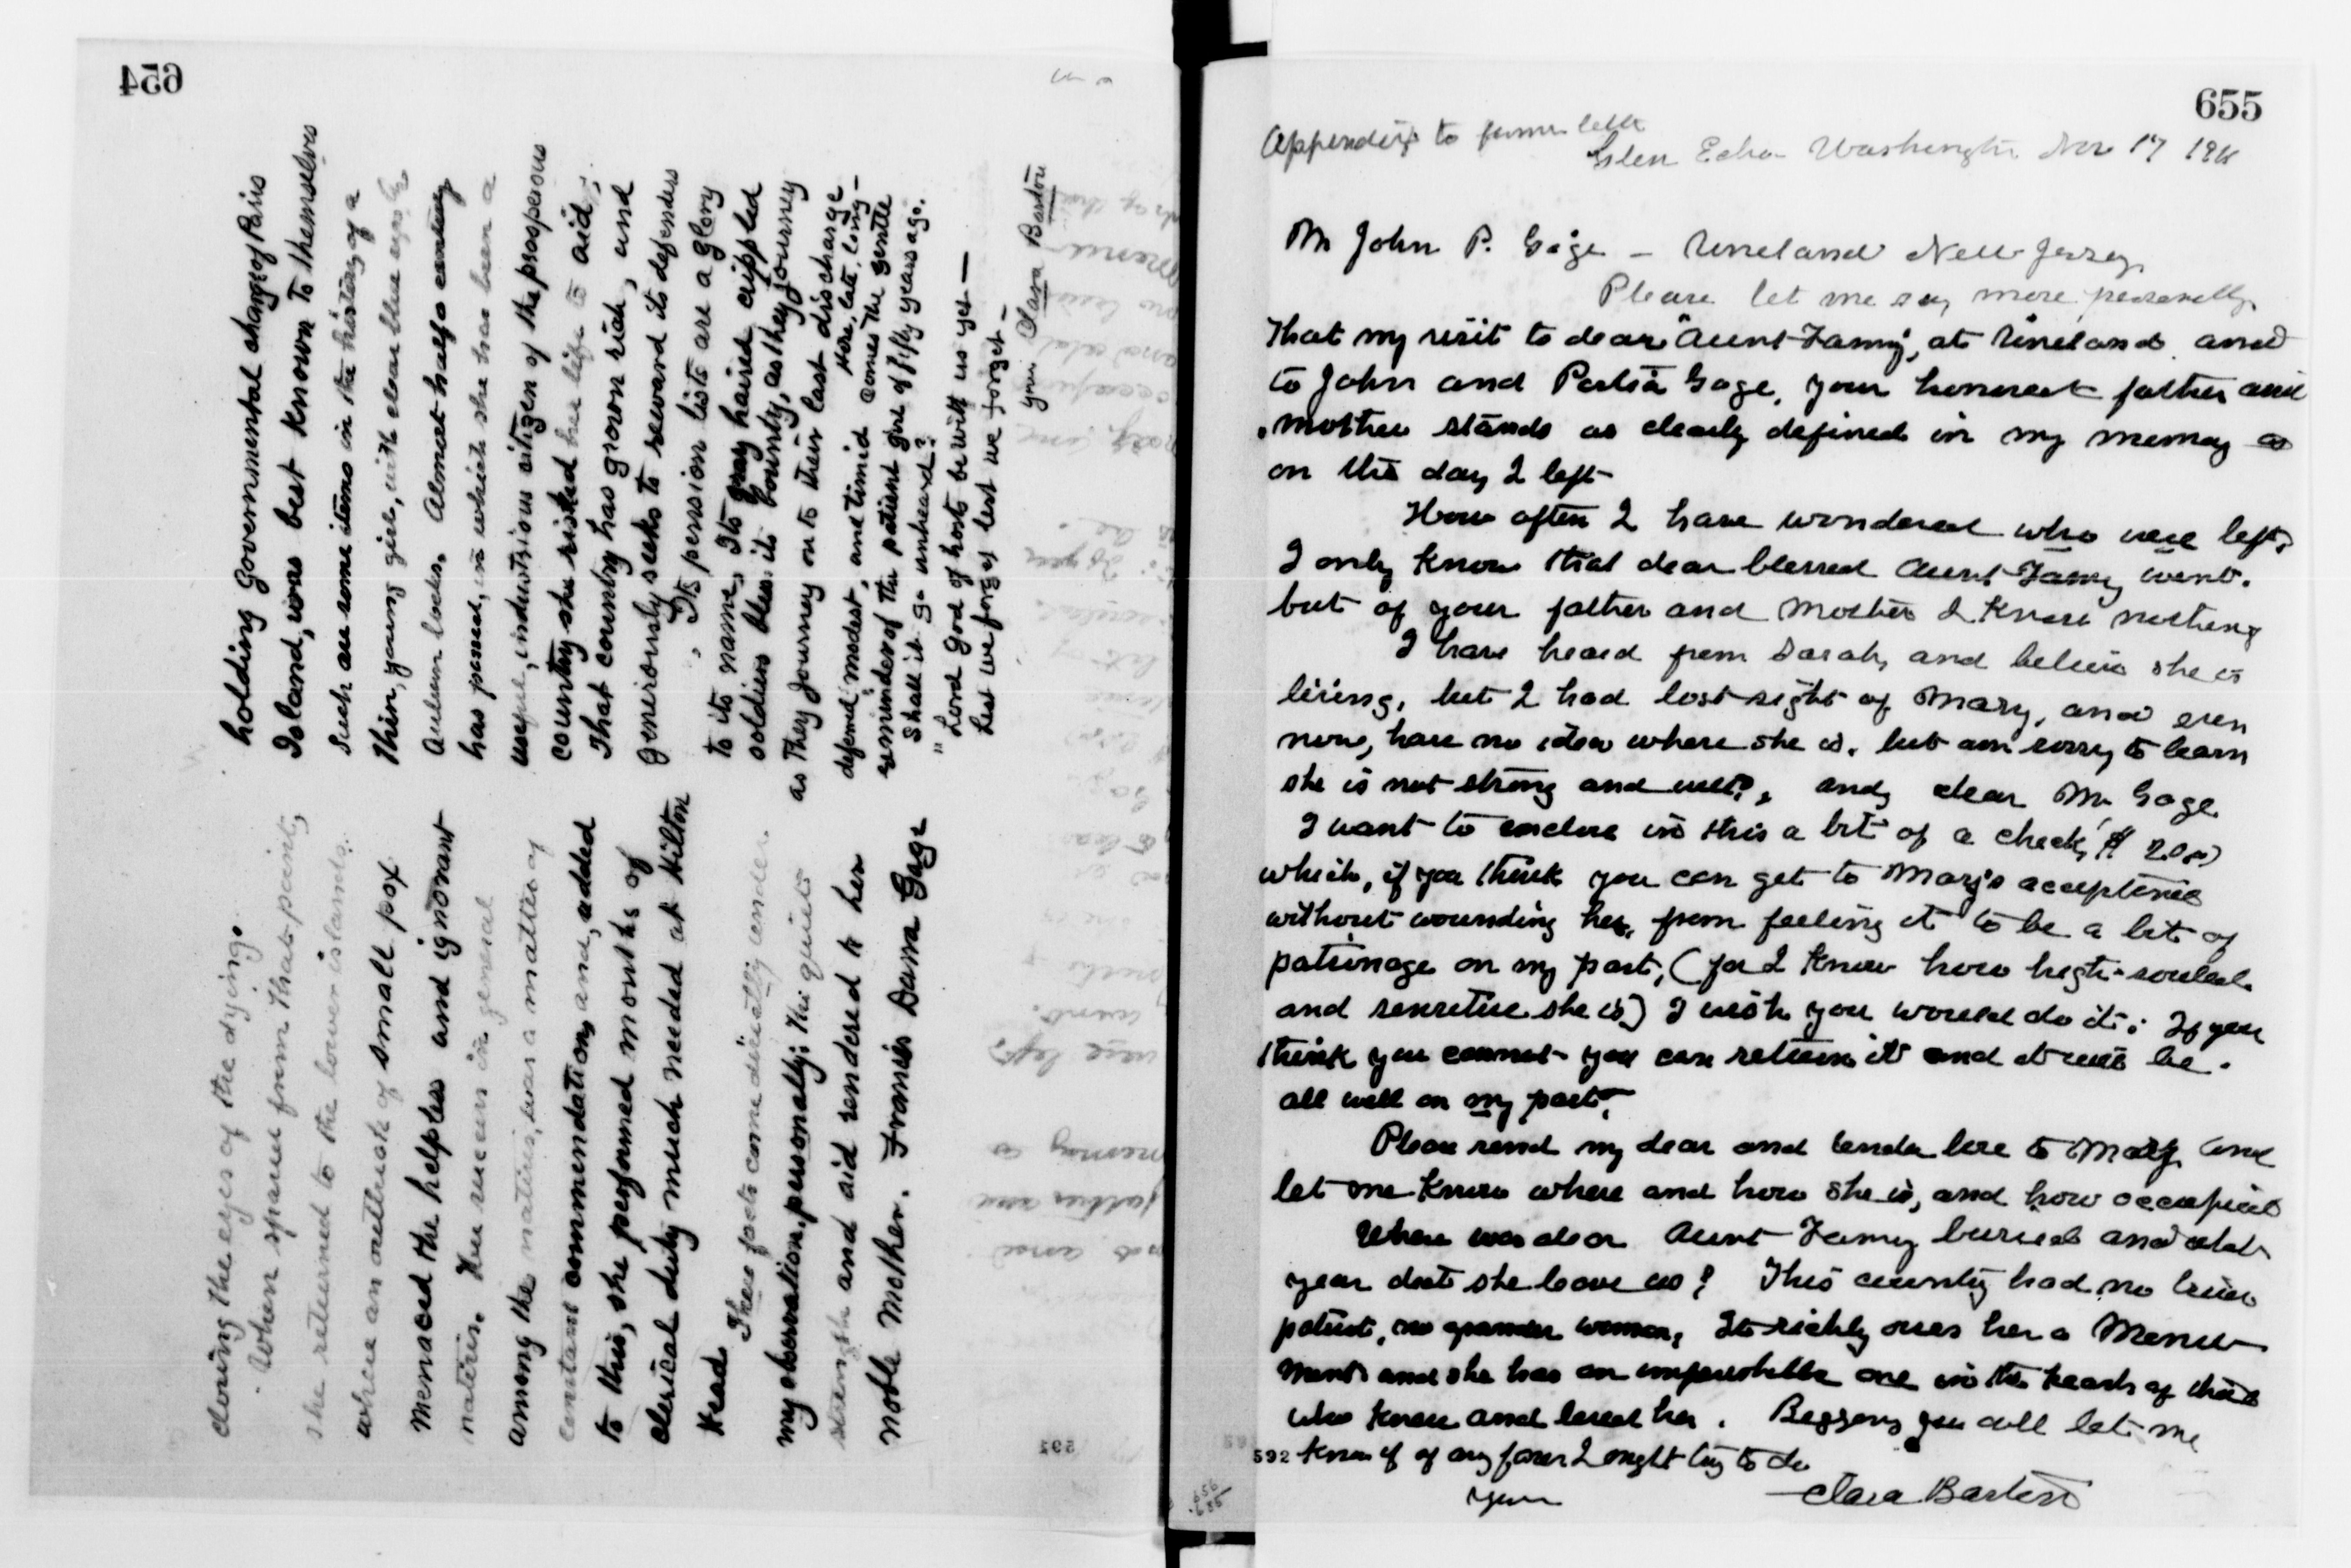 654
closing the eyes of the dying.
When spared from that point,
she returned to the lower islands.
where an outbreak of small pox
menaced the helpless and ignorant
natives. Her success in general
among the natives, was a matter of
constant commendation, and, added
to this, she performed months of
clerical duty much needed at Hilton
Head.
These facts come directly under
my observation, personally: the quiet
strength and aid rendered to her
noble mother. Francis Dana Gage
holding Governmental charge of Paris
Island, was best known to themselves
Such are some items in the history of a
thin, young girl, with clear blue eyes &
Auburn locks. Almost half a century
has passed, in which she has been a
useful, industrious citizen of the prosperous
country she risked her life to aid;
That country has grown rich, and
generiously seeks to reward its defenders
Its pension lists are a glory
to its name, Its gray haired crippled
soldiers bless its bounty, as they journey
as they journey on to their last discharge
Here, late, long-
deferred modest, and timid comes the gentle
reminder of the patient girl of fifty years ago.
Shall it go unheard?
"Lord God of hosts be with us yet —
Lest we forget lest we forget —
Yours Clara Barton
592
655
Appendix to former letter
Glen Echo Washington Nov 17 1911
Mr John P. Gage – Vineland New Jersey
Please let me say more personally
That my visit to dear "Aunt Fanny", at Vineland and
to John and Portia Gage, your honored father and
mother stands as clearly defined in my memory as
on the day I left
How often I have wondered who were left,
I only know that dear blessed Aunt Fanny went.
but of your father and mother I knew nothing
I have heard from Sarah, and believe she is
living, but I had lost sight of Mary, and even
now, have no idea where she is. but am sorry to learn
she is not strong and well, and, dear Mr Gage
I want to enclose in this a bit of a check, $
which, if you think you can get to Mary's acceptance
without wounding her, from feeling it to be a bit of
patronage on my part, (for I know how high-souled
and sensitive she is) I wish you would do it; If you
think you cannot you can return it and it will be
all well on my part.
Please send my dear and tender love to Mary and
let me know where and how she is, and how occupied
Where was dear Aunt Fanny buried and what
year did she leave us? This country had no truer
patriot, no grander woman, It richly owes her a Monu
ment and she has an imperishable one in the hearts of those
who knew and loved her. Begging you will let me
592 know if of any favor I ought try to do
Yours Clara Barton